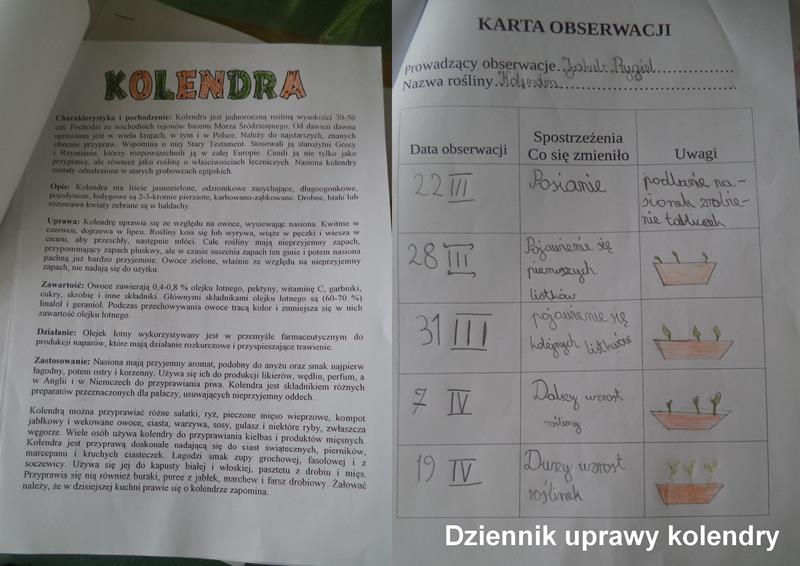 KOLENDRA
Charakterystyka i pochodzenie: Kolendra jest jednoroczną rośliną wysokości 30-50
cm. Pochodzi ze wschodnich rejonów basenu Morza Śródziemnego. Od dawien dawna
uprawiana jest w wielu krajach, w tym i w Polsce. Należy do najstarszych, znanych
obecnie przypraw. Wspomina o niej Stary Testament. Stosowali ją starożytni Grecy
i Rzymianie, którzy rozpowszechnili ją w całej Europie. Cenili ją nie tylko jako
przyprawę, ale również jako roślinę o właściwościach leczniczych. Nasiona kolendry
zostały odnalezione w starych grobowcach egipskich.
Opis: Kolendra ma liście jasnozielone, odziomkowe zasychające, długoogonkowe,
pojedyncze, łodygowe są 2-3-krotnie pierzaste, karbowano-ząbkowane. Drobne, białe lub
różowawe kwiaty zebrane są w baldachy.
Uprawa: Kolendrę uprawia się ze względu na owoce, wysiewając nasiona. Kwitnie w
czerwcu, dojrzewa w lipcu. Rośliny kosi się lub wyrywa, wiąże w pęczki i wiesza w
cieniu, aby przeschły, następnie młóci. Całe rośliny mają nieprzyjemny zapach,
przypominający zapach pluskwy, ale w czasie suszenia zapach ten ginie i potem nasiona
pachną już bardzo przyjemnie. Owoce zielone, właśnie ze względu na nieprzyjemny
zapach, nie nadają się do użytku.
Zawartość: Owoce zawierają 0,4-0,8 % olejku lotnego, pektyny, witaminę C, garbniki,
cukry, skrobię i inne składniki. Głównymi składnikami olejku lotnego są (60-70 %)
linalol i geraniol. Podczas przechowywania owoce tracą kolor i zmniejsza się w nich
zawartość olejku lotnego.
Działanie: Olejek lotny wykorzystywany jest w przemyśle farmaceutycznym do
produkcji naparów, które mają działanie rozkurczowe i przyspieszające trawienie.
Zastosowanie: Nasiona mają przyjemny aromat, podobny do anyżu oraz smak najpierw
łagodny, potem ostry i korzenny. Używa się ich do produkcji likierów, wędlin, perfum, a
w Anglii i w Niemczech do przyprawiania piwa. Kolendra jest składnikiem różnych
preparatów przeznaczonych dla palaczy, usuwających nieprzyjemny oddech.
Kolendrą można przyprawiać różne sałatki, ryż, pieczone mięso wieprzowe, kompot
jabłkowy i wekowane owoce, ciasta, warzywa, sosy, gulasz i niektóre ryby, zwłaszcza
węgorze. Wiele osób używa kolendry do przyprawiania kiełbas i produktów mięsnych.
Kolendra jest przyprawą doskonale nadającą się do ciast świątecznych, pierników,
marcepanu i kruchych ciasteczek. Łagodzi smak zupy grochowej, fasolowej i z
soczewicy. Używa się jej do kapusty białej i włoskiej, pasztetu z drobiu i mięs.
Przyprawia się nią również buraki, puree z jabłek, marchew i farsz drobiowy. Żałować
należy, że w dzisiejszej kuchni prawie się o kolendrze zapomina.
KARTA OBSERWACJI
Prowadzący obserwacje. Jakub Rygiel
Nazwa rośliny Kolendra
Data obserwacji
Spostrzeżenia
Co się zmieniło
Uwagi
22 III
Posianie
podlanie na-
sionek zrobie-
nie tabliczek
28 III
Pojawienie się
pierwszych
listków
31 III
pojawienie się
kolejnych listków
7 IV
Dalszy wzrost
rośliny
19 IV
Duży wzrost
roślinek
Dziennik uprawy kolendry